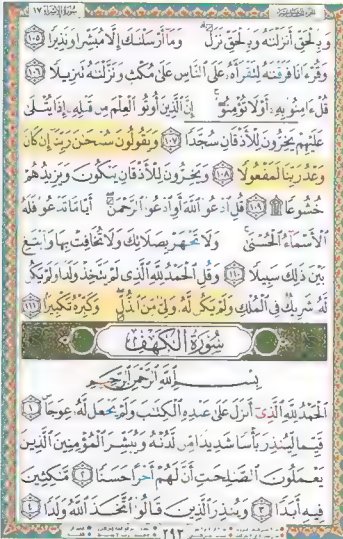 سُورَةُ الإِسْرَاءِ ١٧
وَبِالْحَقِّ أَنزَلْنَٰهُ وَبِالْحَقِّ نَزَلَ ۗ وَمَآ أَرْسَلْنَٰكَ إِلَّا مُبَشِّرًا وَنَذِيرًا ﴿١٠٥﴾
وَقُرْءَانًا فَرَقْنَٰهُ لِتَقْرَأَهُۥ عَلَى النَّاسِ عَلَىٰ مُكْثٍ وَنَزَّلْنَٰهُ تَنزِيلًا ﴿١٠٦﴾
قُلْ ءَامِنُوا۟ بِهِۦٓ أَوْ لَا تُؤْمِنُوٓا۟ ۚ إِنَّ الَّذِينَ أُوتُوا۟ الْعِلْمَ مِن قَبْلِهِۦٓ إِذَا يُتْلَىٰ
عَلَيْهِمْ يَخِرُّونَ لِلْأَذْقَانِ سُجَّدًا ﴿١٠٧﴾ وَيَقُولُونَ سُبْحَٰنَ رَبِّنَآ إِن كَانَ
وَعْدُ رَبِّنَا لَمَفْعُولًا ﴿١٠٨﴾ وَيَخِرُّونَ لِلْأَذْقَانِ يَبْكُونَ وَيَزِيدُهُمْ
خُشُوعًا ۩ ﴿١٠٩﴾ قُلِ ادْعُوا۟ اللَّهَ أَوِ ادْعُوا۟ الرَّحْمَٰنَ ۖ أَيًّا مَّا تَدْعُوا۟ فَلَهُ
الْأَسْمَآءُ الْحُسْنَىٰ ۚ وَلَا تَجْهَرْ بِصَلَاتِكَ وَلَا تُخَافِتْ بِهَا وَابْتَغِ
بَيْنَ ذَٰلِكَ سَبِيلًا ﴿١١٠﴾ وَقُلِ الْحَمْدُ لِلَّهِ الَّذِى لَمْ يَتَّخِذْ وَلَدًا وَلَمْ يَكُن
لَّهُۥ شَرِيكٌ فِى الْمُلْكِ وَلَمْ يَكُن لَّهُۥ وَلِىٌّ مِّنَ الذُّلِّ ۖ وَكَبِّرْهُ تَكْبِيرًا ﴿١١١﴾
سُورَةُ الْكَهْفِ
بِسْمِ اللَّهِ الرَّحْمَٰنِ الرَّحِيمِ
الْحَمْدُ لِلَّهِ الَّذِىٓ أَنزَلَ عَلَىٰ عَبْدِهِ الْكِتَٰبَ وَلَمْ يَجْعَل لَّهُۥ عِوَجَا ﴿١﴾
قَيِّمًا لِّيُنذِرَ بَأْسًا شَدِيدًا مِّن لَّدُنْهُ وَيُبَشِّرَ الْمُؤْمِنِينَ الَّذِينَ
يَعْمَلُونَ الصَّٰلِحَٰتِ أَنَّ لَهُمْ أَجْرًا حَسَنًا ﴿٢﴾ مَّٰكِثِينَ
فِيهِ أَبَدًا ﴿٣﴾ وَيُنذِرَ الَّذِينَ قَالُوا۟ اتَّخَذَ اللَّهُ وَلَدًا ﴿٤﴾
٢٩٣